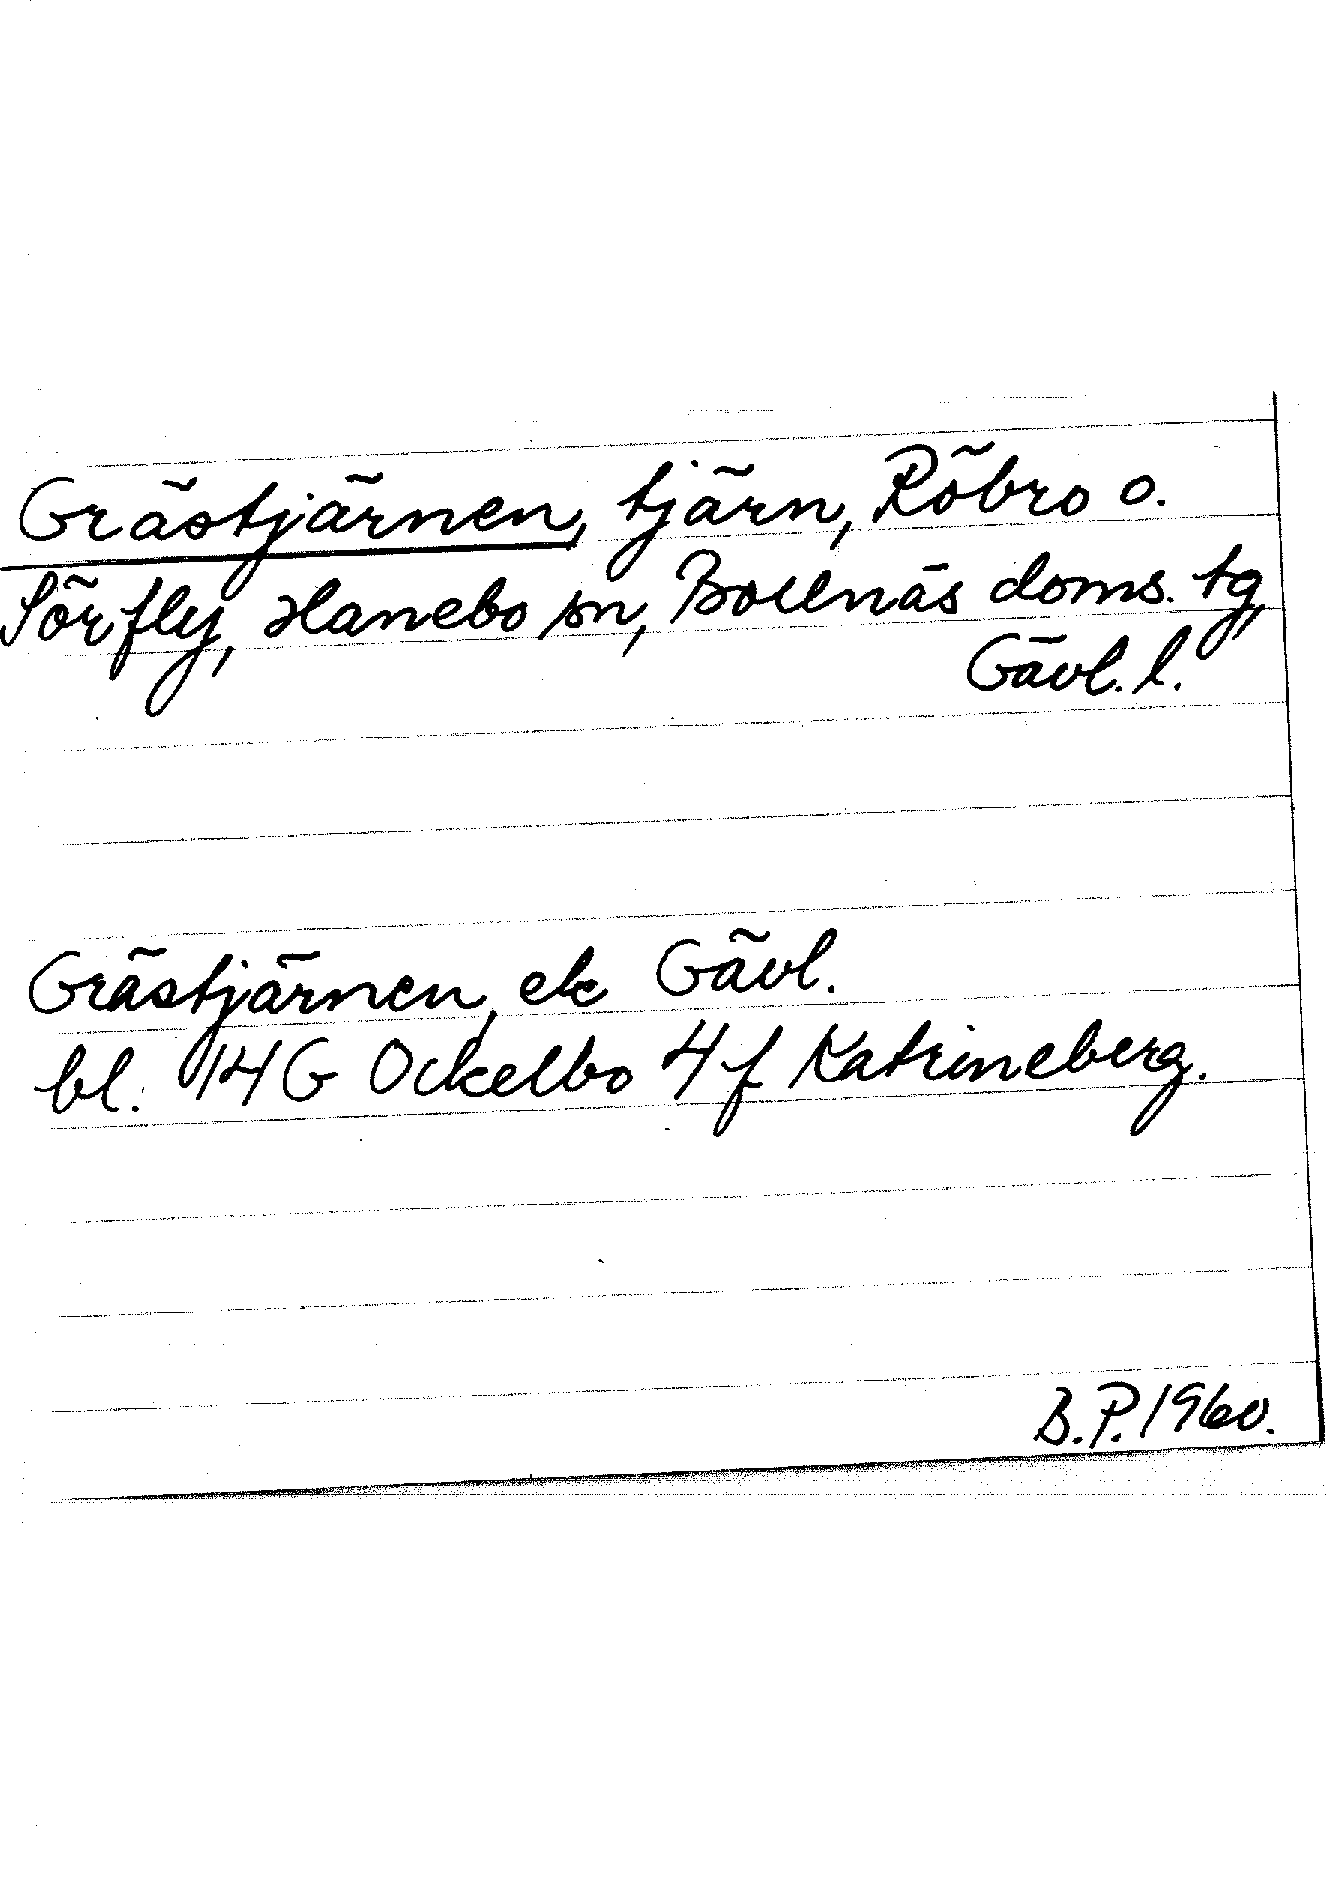 Grästjärnen, tjärn, Röbro o.
Sörfly, Hanebo sn, Bollnäs doms. tg,
Gävl. l.
Grästjärnen, ek Gävl.
bl. 14G Ockelbo 4f Katrineberg.
B.P. 1960.